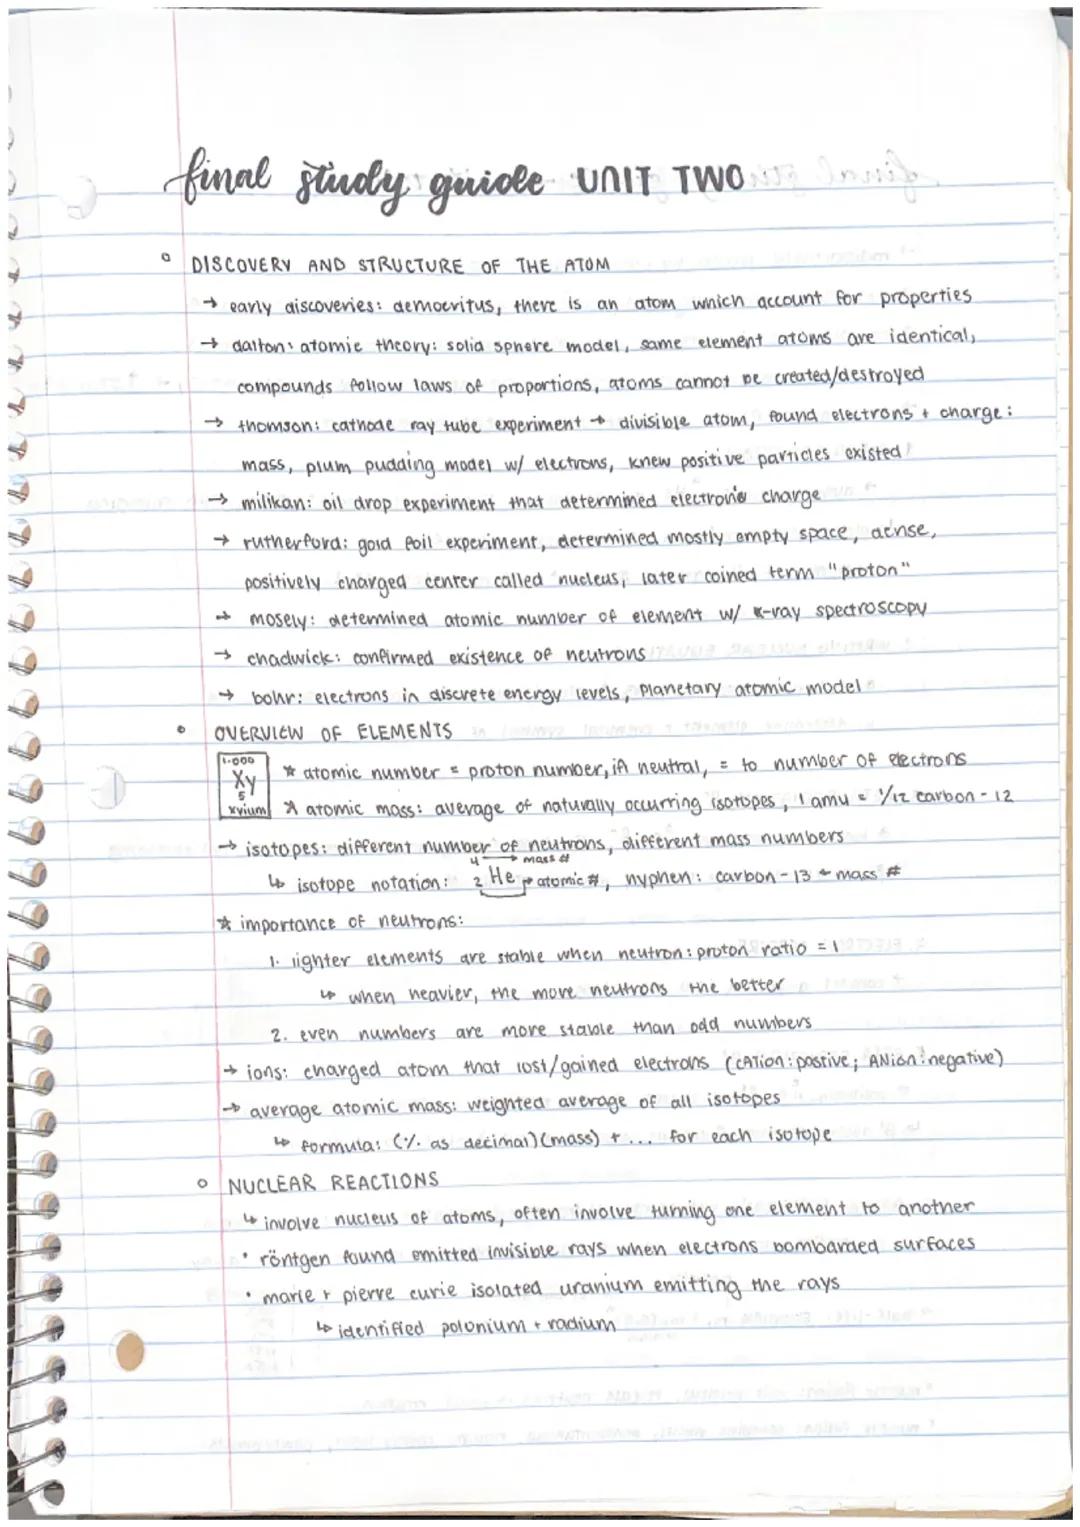 final study guide UNIT TWO
◦ DISCOVERY AND STRUCTURE OF THE ATOM
→ early discoveries: democritus, there is an atom which account for properties
→ dalton: atomic theory: solid sphere model, same element atoms are identical,
compounds follow laws of proportions, atoms cannot be created/destroyed
→ thomson: cathode ray tube experiment → divisible atom, found electrons + charge:
mass, plum pudding model w/ electrons, knew positive particles existed
→ milikan: oil drop experiment that determined electron's charge
→ rutherford: gold foil experiment, determined mostly empty space, dense,
positively charged center called nucleus, later coined term "proton"
→ mosely: determined atomic number of element w/ x-ray spectroscopy
→ chadwick: confirmed existence of neutrons
→ bohr: electrons in discrete energy levels, planetary atomic model
• OVERVIEW OF ELEMENTS
1.000
Xy
5
xyium
* atomic number = proton number, if neutral, = to number of electrons
* atomic mass: average of naturally occurring isotopes, 1 amu = 1/12 carbon-12
→ isotopes: different number of neutrons, different mass numbers
4 → mass #
↳ isotope notation: 2 He → atomic #, hyphen: carbon-13 ← mass #
* importance of neutrons:
1. lighter elements are stable when neutron:proton ratio = 1
↳ when heavier, the more neutrons the better
2. even numbers are more stable than odd numbers
→ ions: charged atom that lost/gained electrons (cATion: postive; ANion: negative)
→ average atomic mass: weighted average of all isotopes
↳ formula: (% as decimal)(mass) + ... for each isotope
◦ NUCLEAR REACTIONS
↳ involve nucleus of atoms, often involve turning one element to another
• röntgen found emitted invisible rays when electrons bombarded surfaces
• marie + pierre curie isolated uranium emitting the rays
↳ identified polonium + radium